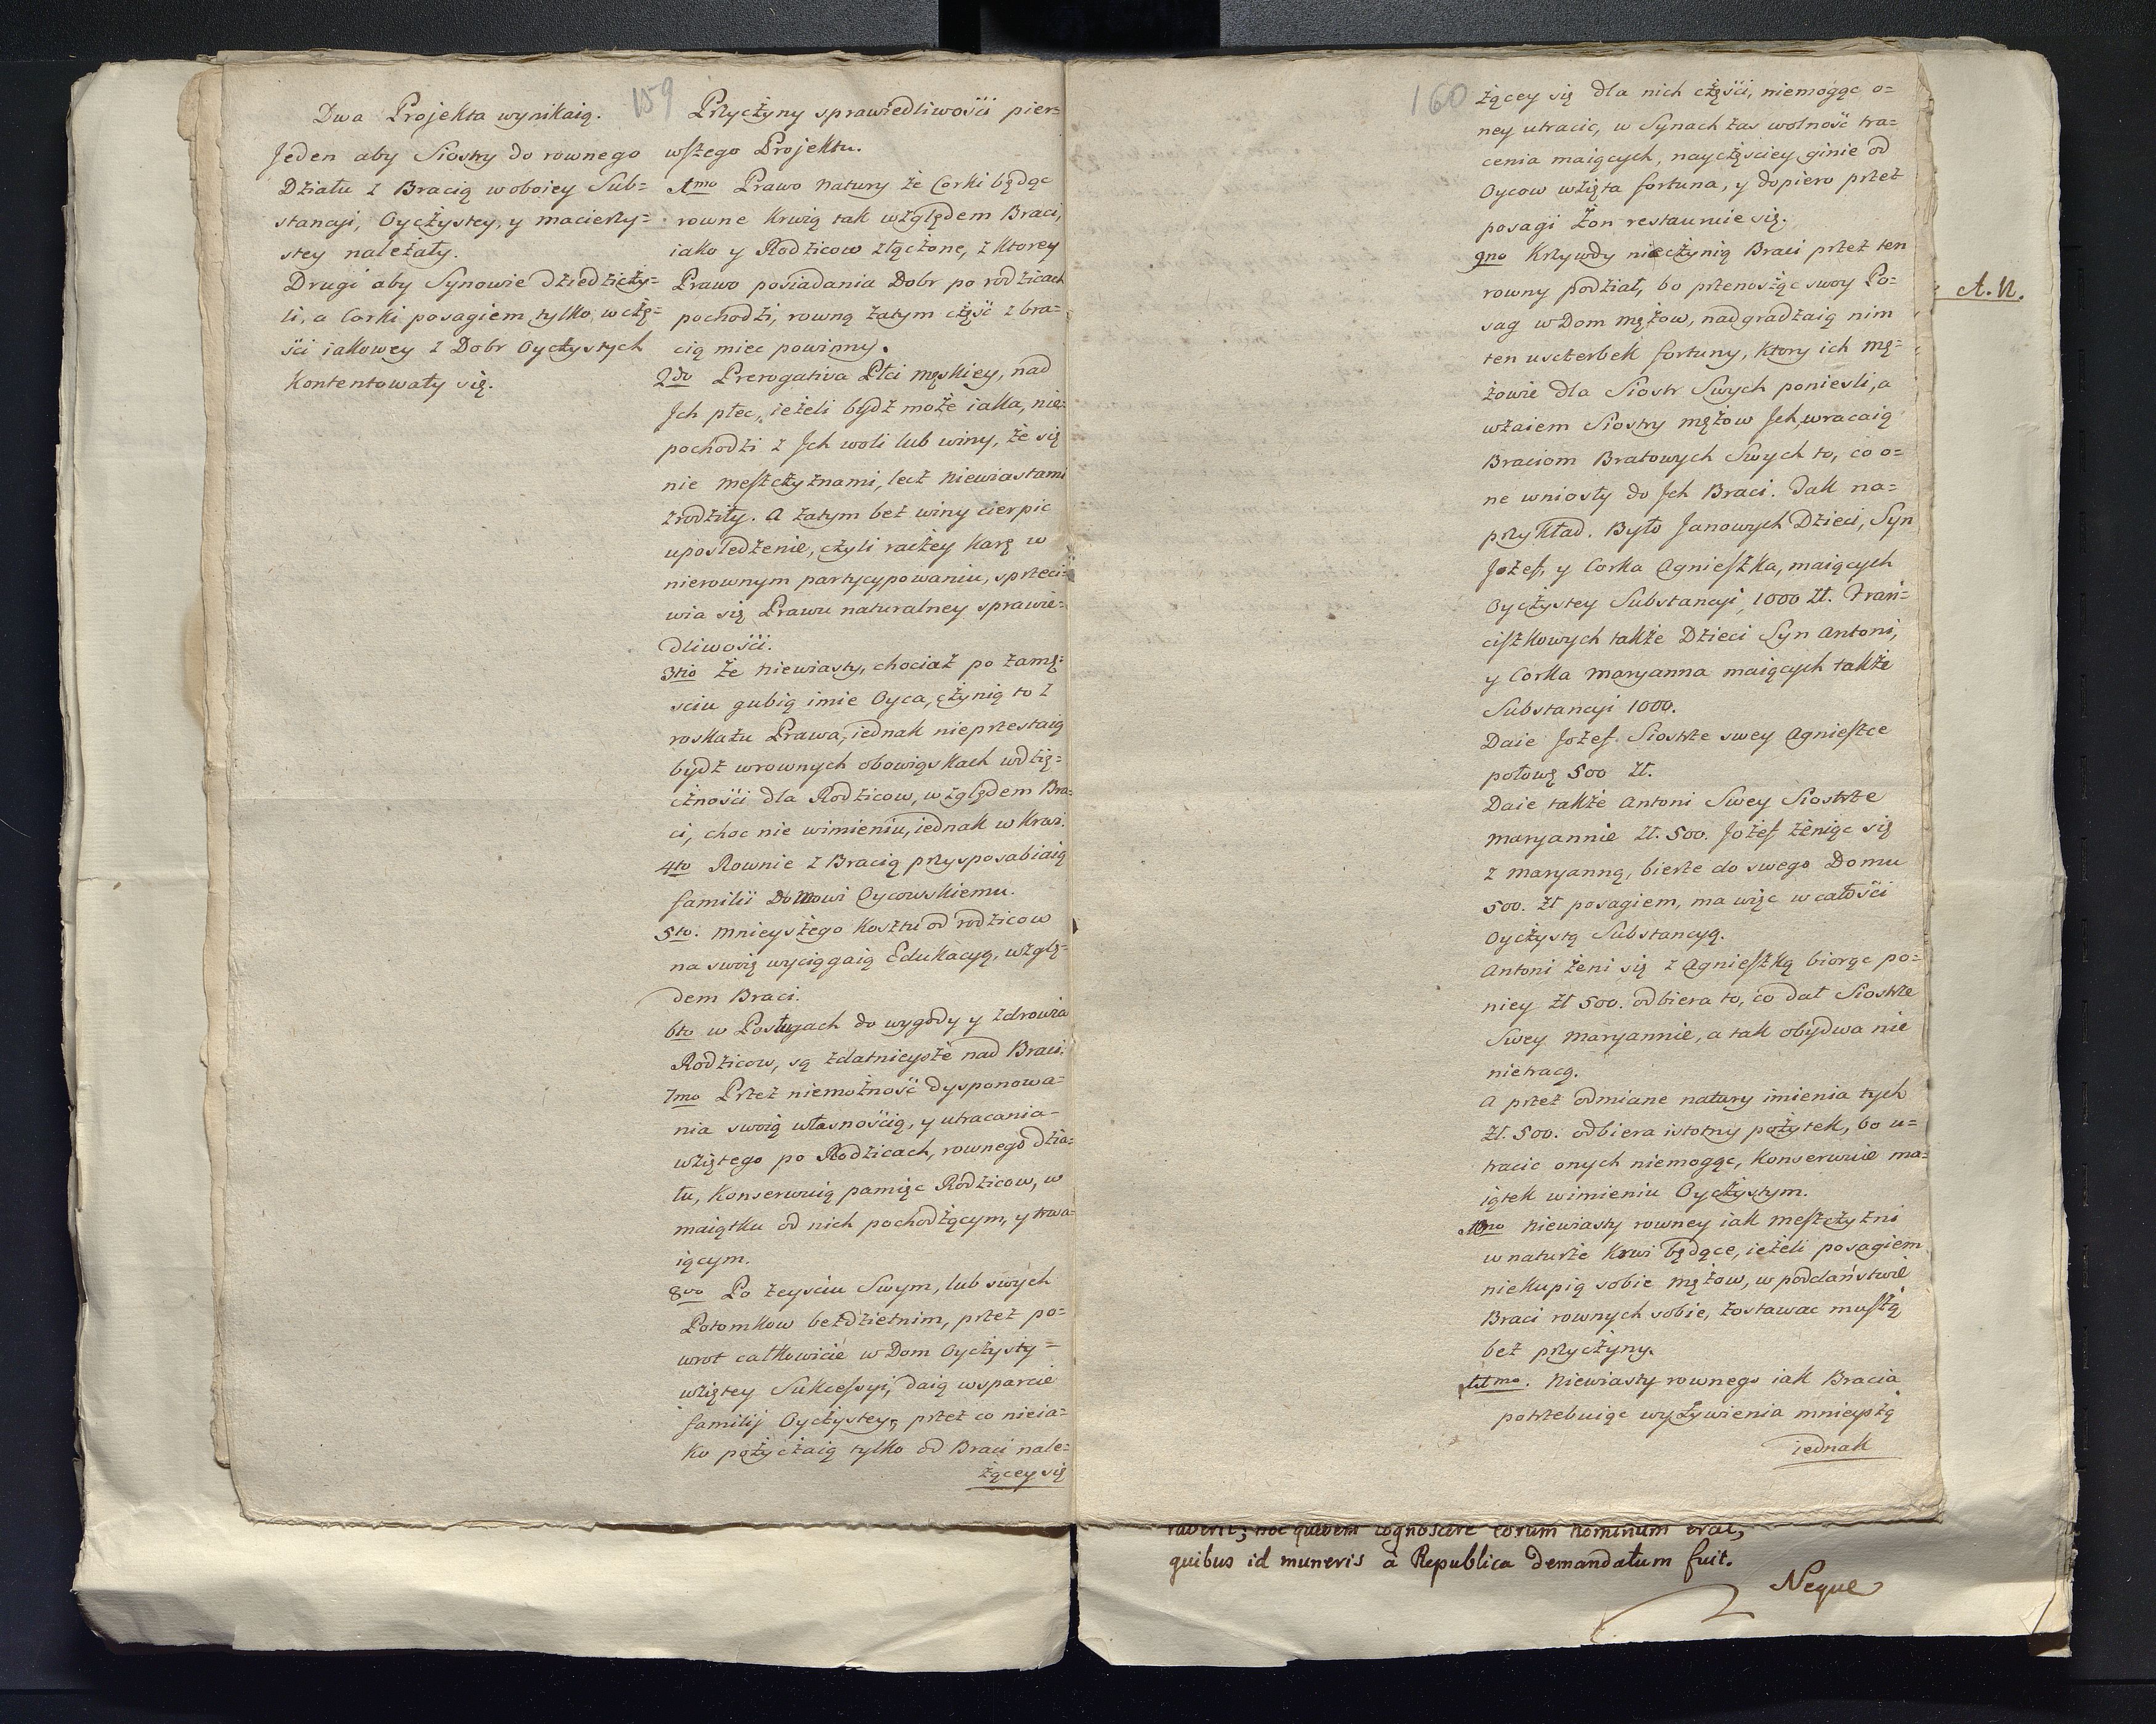 159
Dwa Projekta wynikaią.
Jeden aby Siostry do rownego
Działu z Bracią w oboiey Sub=
stancyi, Oyczystey, y macierzy=
stey należały.
Drugi aby Synowie dziedziczy=
li, a Corki posagiem tylko w czę=
ści iakowey z Dobr Oyczystych
kontentowały się.
Przyczyny sprawiedliwości pier=
wszego Projektu.
1mo Prawo Natury że Corki będąc
rowne krwią tak względem Braci,
iako y Rodzicow złączone, z ktorey
Prawo posiadania Dobr po rodzicach
pochodzi, rowną zatym część z bra=
cią miec powinny.
2do Prerogativa Płci męskiey, nad
Ich płec, ieżeli bydz może iaka, nie=
pochodzi z Ich woli lub winy, że się
nie meszczyznami, lecz niewiastami
zrodziły. A zatym bez winy cierpic
upośledzenie, czyli raczey karę w
nierownym partycypowaniu, sprzeci=
wia się Prawu naturalney sprawie=
dliwości.
3tio Że niewiasty, chociaż po zamę=
sciu gubią imie Oyca, czynią to z
roskazu Prawa, iednak nieprzestaią
bydz w rownych obowiąskach wdzię=
czności dla Rodzicow, względem Bra=
ci, choc nie w imieniu, iednak w krwi.
4to Rownie z Bracią przysposabiaią
familii Domowi Oycowskiemu.
5to. Mnieyszego kosztu od rodzicow
na swoię wyciągaią Edukacyą, wzglę=
dem Braci.
6to w Posługach do wygody y zdrowia
Rodzicow, są zdatnieysze nad Braci.
7mo Przez niemożność dysponowa=
nia swoią własnością, y utracania=
wziętego po Rodzicach, rownego dzia=
łu, konserwuią pamięc Rodzicow, w
maiątku od nich pochodzącym, y trwa=
iącym.
8vo Po zeysciu Swym, lub swych
Potomkow bezdzietnim, przez po=
wrot całkowicie w Dom Oyczysty=
wziętey Sukcessyi, daią wsparcie
familij Oyczystey, przez co nieia=
ko pożyczaią tylko od Braci nale=
żącey się
160
żącey się dla nich części, niemogąc o=
ney utracic, w Synach zas wolność tra=
cenia maiących, nayczęsciey ginie od
Oycow wzięta fortuna, y dopiero przez
posagi żon restauruie się.
9no Krzywdy nieczynią Braci przez ten
rowny podział, bo przenosząc swoy Po=
sag w Dom mężow, nadgradzaią nim
ten uszczerbek fortuny, ktory ich mę=
żowie dla Siostr Swych poniesli, a
wzaiem Siostry mężow Ich, wracaią
Braciom Bratowych Swych to, co o=
ne wniosły do Ich Braci. Jak na=
przykład. Było Janowych Dzieci, Syn
Jozef, y Corka Agnieszka, maiących
Oyczystey Substancyi, 1000 Zł. Fran=
ciszkowych także Dzieci Syn Antoni,
y Corka Maryanna maiących także
Substancyi 1000.
Daie Jozef Siostrze swey Agnieszce
połowę 500 Zł.
Daie także Antoni Swey Siostrze
Maryannie Zł. 500. Jozef żeniąc się
z Maryanną, bierze do swego Domu
500. Zł posagiem, ma więc w całości
Oyczystą Substancyą.
Antoni żeni się z Agnieszką biorąc po=
niey Zł 500. odbiera to, co dał Siostrze
Swey Maryannie, a tak obydwa nie
nietracą.
A przez odmiane natury imienia tych
Zł. 500. odbiera istotny pożytek, bo u=
tracic onych niemogąc, konserwuie ma=
iątek w imieniu Oyczystym.
10mo Niewiasty rowney iak meszczyzni
w naturze krwi będące, ieżeli posagiem
niekupią sobie mężow, w poddaństwie
Braci rownych sobie, zostawac muszą
bez przyczyny.
11mo. Niewiasty rownego iak Bracia
potrzebuiąc wyżywienia mnieyszą
iednak
A. N.
quidem cognoscere eorum hominum erat,
quibus id muneris à Republica demandatum fuit.
Neque